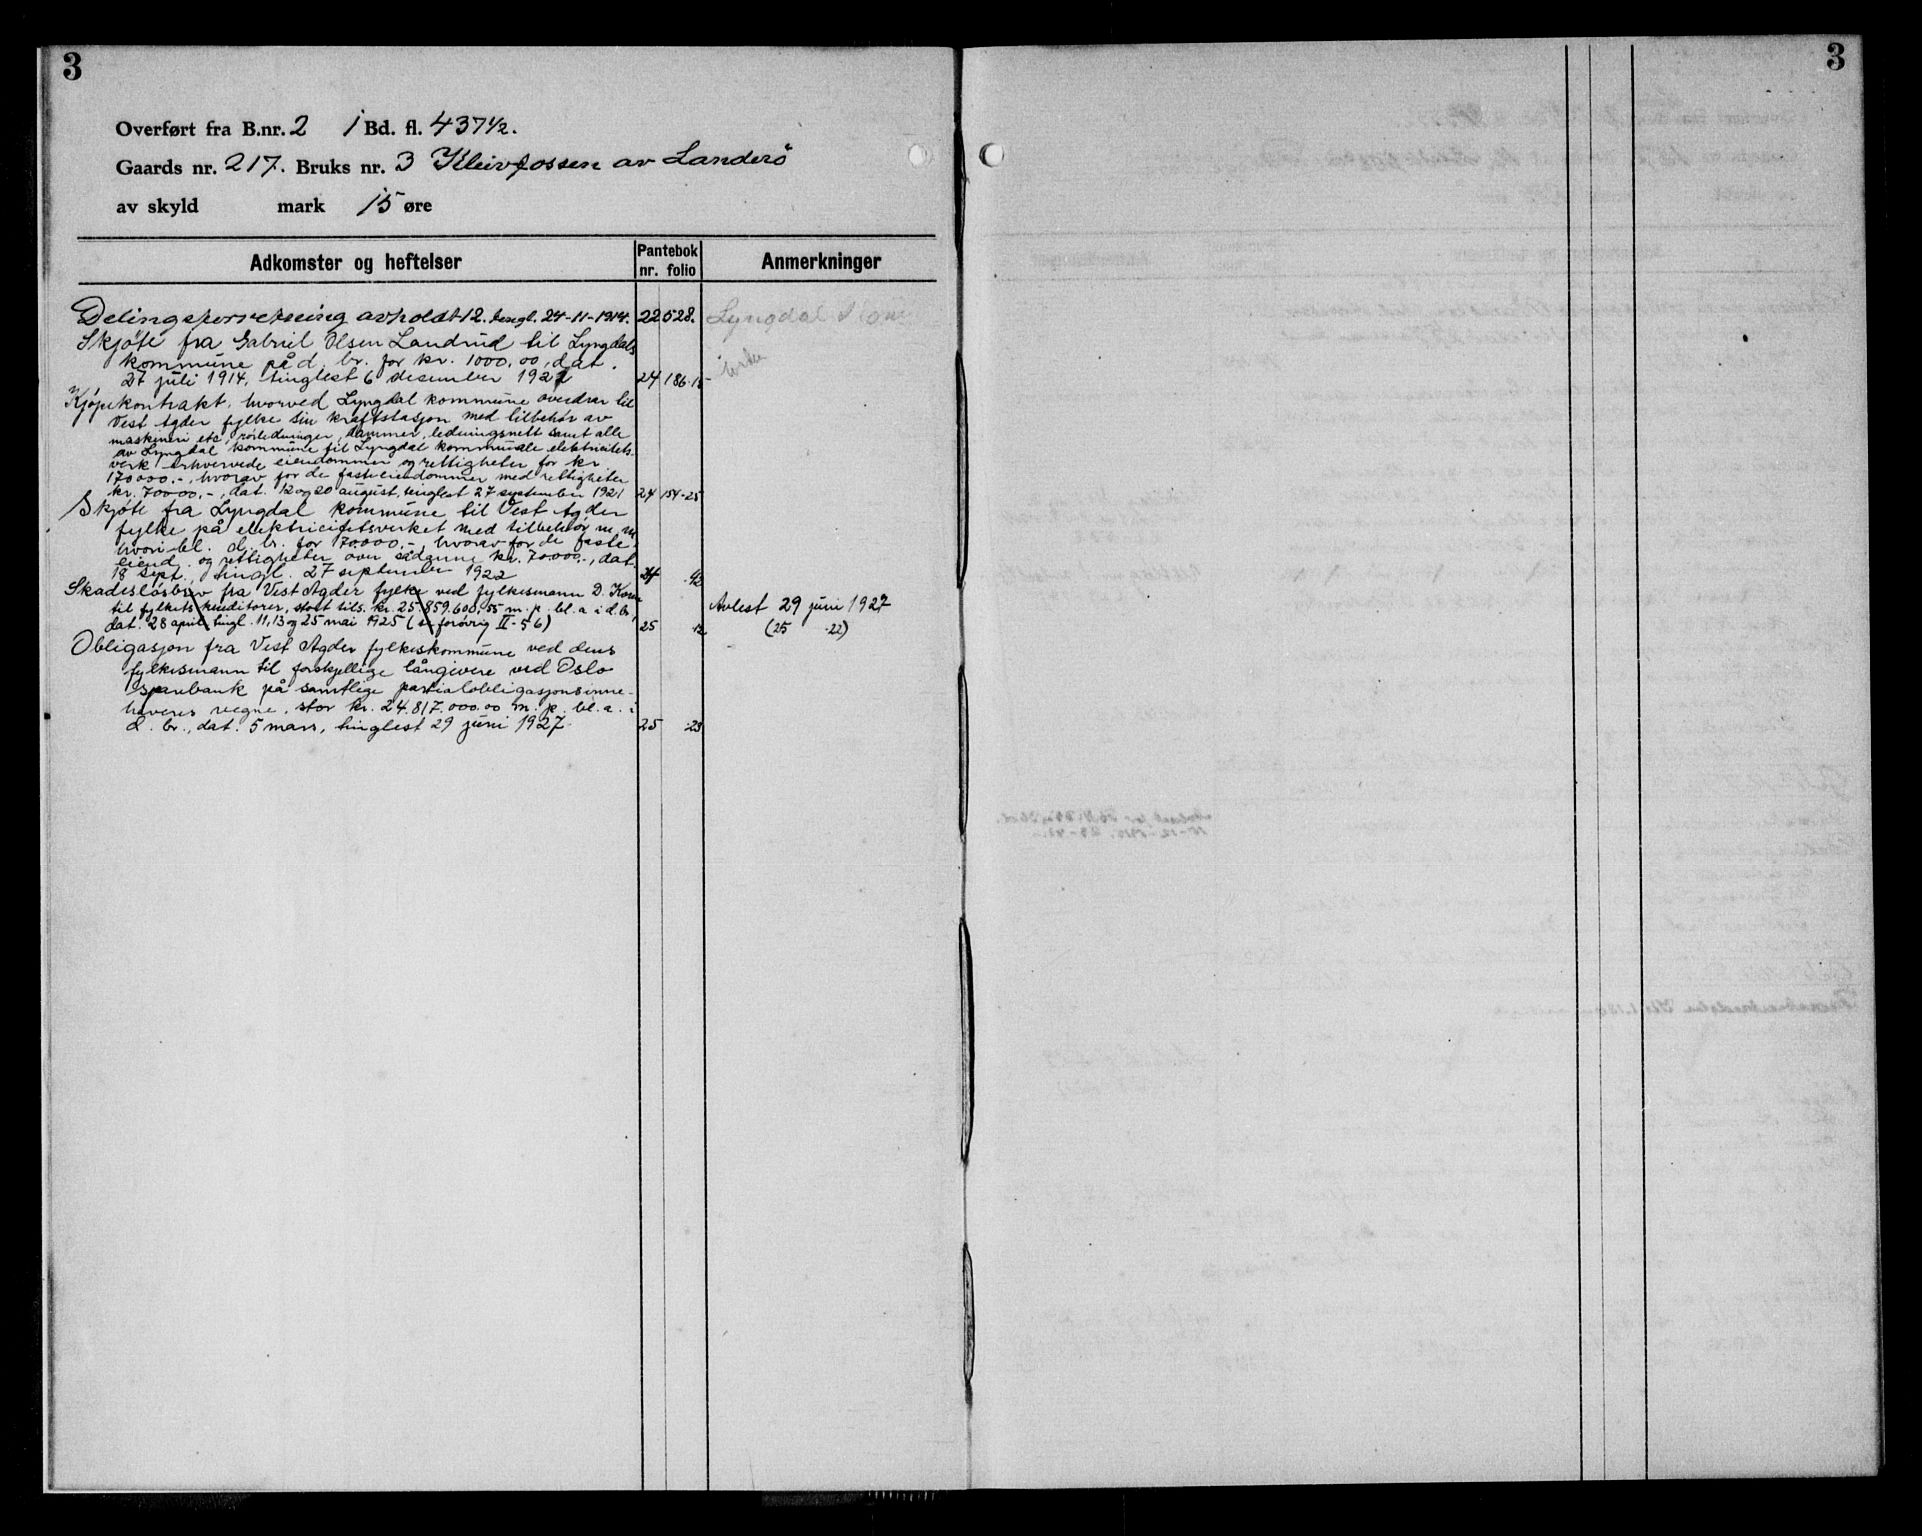 3
3
Overført fra B.nr. 2 1 Bd. fl. 437 1/2.
Gaards nr. 217. Bruks nr. 3 Kleivfossen av Landerö
av skyld mark 15 øre
Adkomster og heftelser
Pantebok
nr. folio
Anmerkninger
Delingsforretning avholdt 12. tingl. 24-11-1914. 22 528. Lyngdal
Skjøte fra Gabriel Olsen Landrud til Lyngdals
kommune på d. br. for kr. 1000,00, dat.
27 juli 1914, tinglest 6 desember 1921 24 186
Kjøpekontrakt, hvorved Lyngdal kommune overdrar til
Vest Agder fylke sin kraftstasjon med tilbehør av
maskineri etc, rørledninger, dammer, ledningsnett samt alle
av Lyngdal kommune til Lyngdal kommunale elektricitets-
verk erhvervede eiendommer og rettigheter for kr
170000.-, hvorav for de faste eiendommer med rettigheter
kr. 70000.-, dat. 12 og 20 august, tinglest 27 september 1921 24 154-25
Skjøte fra Lyngdal kommune til Vest Agder
fylke på elektricitetsverket med tilbehör m, m
hvori bl. d. br. for 170.000.-, hvorav for de faste
eiend. og rettigheter over sådanne kr. 70.000.-, dat.
18 sept., tingl. 27 september 1922 24 92
Skadesløsbrev fra Vest Agder fylke ved fylkesmann D. Koren
til fylkets kreditorer, stort tils. kr. 25.859.600,55 m. p. bl. a. i d. br, Avlest 29 juni 1927
dat. 28 april tingl. 11, 13 og 25 mai 1925 (se forøvrig II-56) 25 12 (25 22)
Obligasjon fra Vest Agder fylkeskommune ved dens
fylkesmann til forskjellige långivere ved Oslo
sparebank på samtlige partialobligasjonsinne-
haveres vegne, stor kr. 24.817.000.00 m. p. bl. a. i
d. br., dat. 5 mars, tinglest 29 juni 1927. 25 23